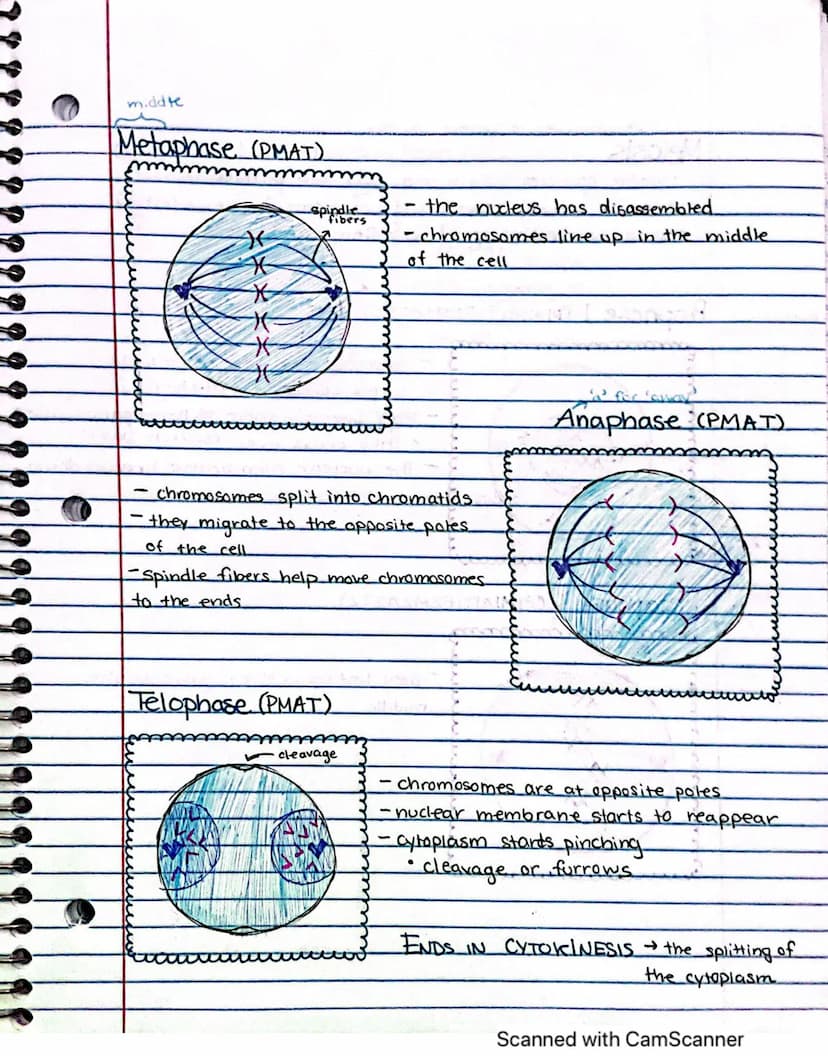 middle
Metaphase (PMAT)
spindle
fibers
- the nucleus has disassembled
- chromosomes line up in the middle
of the cell
'a' for 'away'
Anaphase (PMAT)
- chromosomes split into chromatids
- they migrate to the opposite poles
of the cell
- spindle fibers help move chromosomes
to the ends
Telophase (PMAT)
cleavage
- chromosomes are at opposite poles
- nuclear membrane starts to reappear
- cytoplasm starts pinching
• cleavage or furrows
ENDS IN CYTOKINESIS → the splitting of
the cytoplasm
Scanned with CamScanner